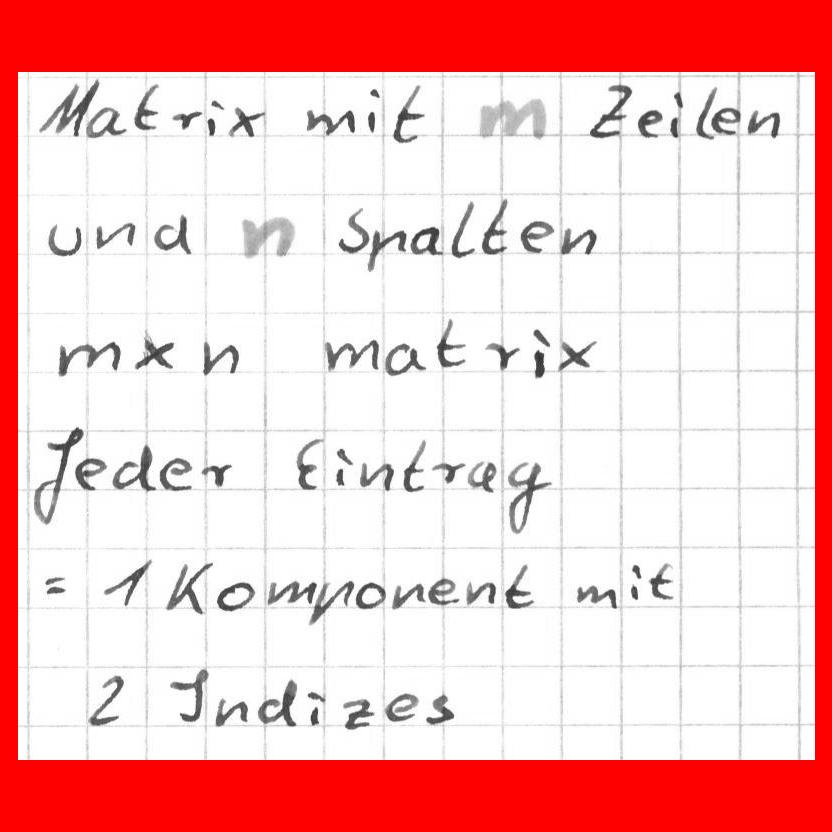 Matrix mit m Zeilen
und n Spalten
m x n matrix
Jeder Eintrag
= 1 Komponent mit
2 Indizes